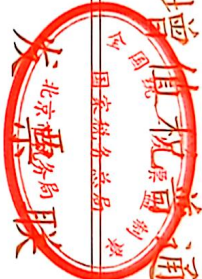 增值税普通
发票联
全国统一发票监制章
国家税务总局
北京市税务局